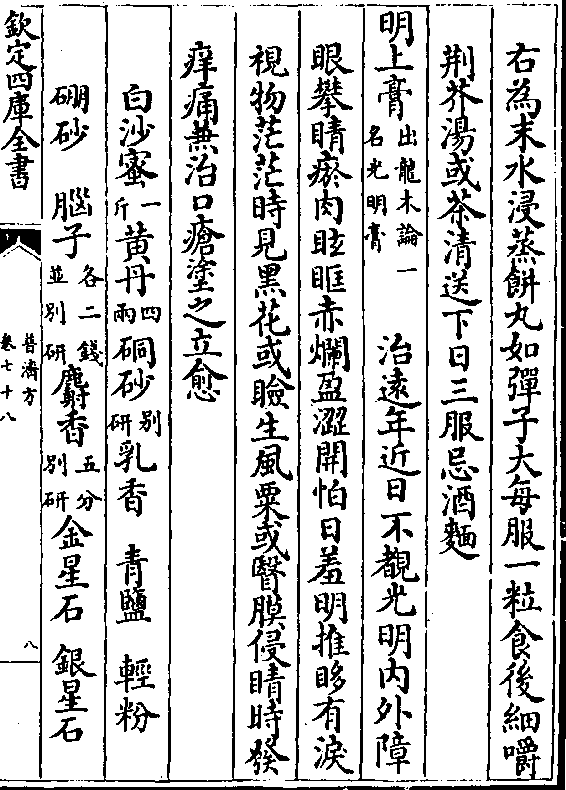 右為末水浸蒸餅丸如彈子大每服一粒食後細嚼
荆芥湯或茶清送下日三服忌酒麵
明上膏出龍木論一名光明膏 治遠年近日不覩光明内外障
眼攀睛瘀肉眩眶赤爛盈澀開怕日羞明推眵有淚
視物茫茫時見黒花或瞼生風粟或瞖膜侵睛時發
痒痛兼治口瘡塗之立愈
白沙蜜一斤黄丹四兩硇砂别研乳香 青鹽 輕粉
硼砂 腦子各二錢並别研麝香五分别研金星石 銀星石
欽定四庫全書
普濟方
卷七十八
八